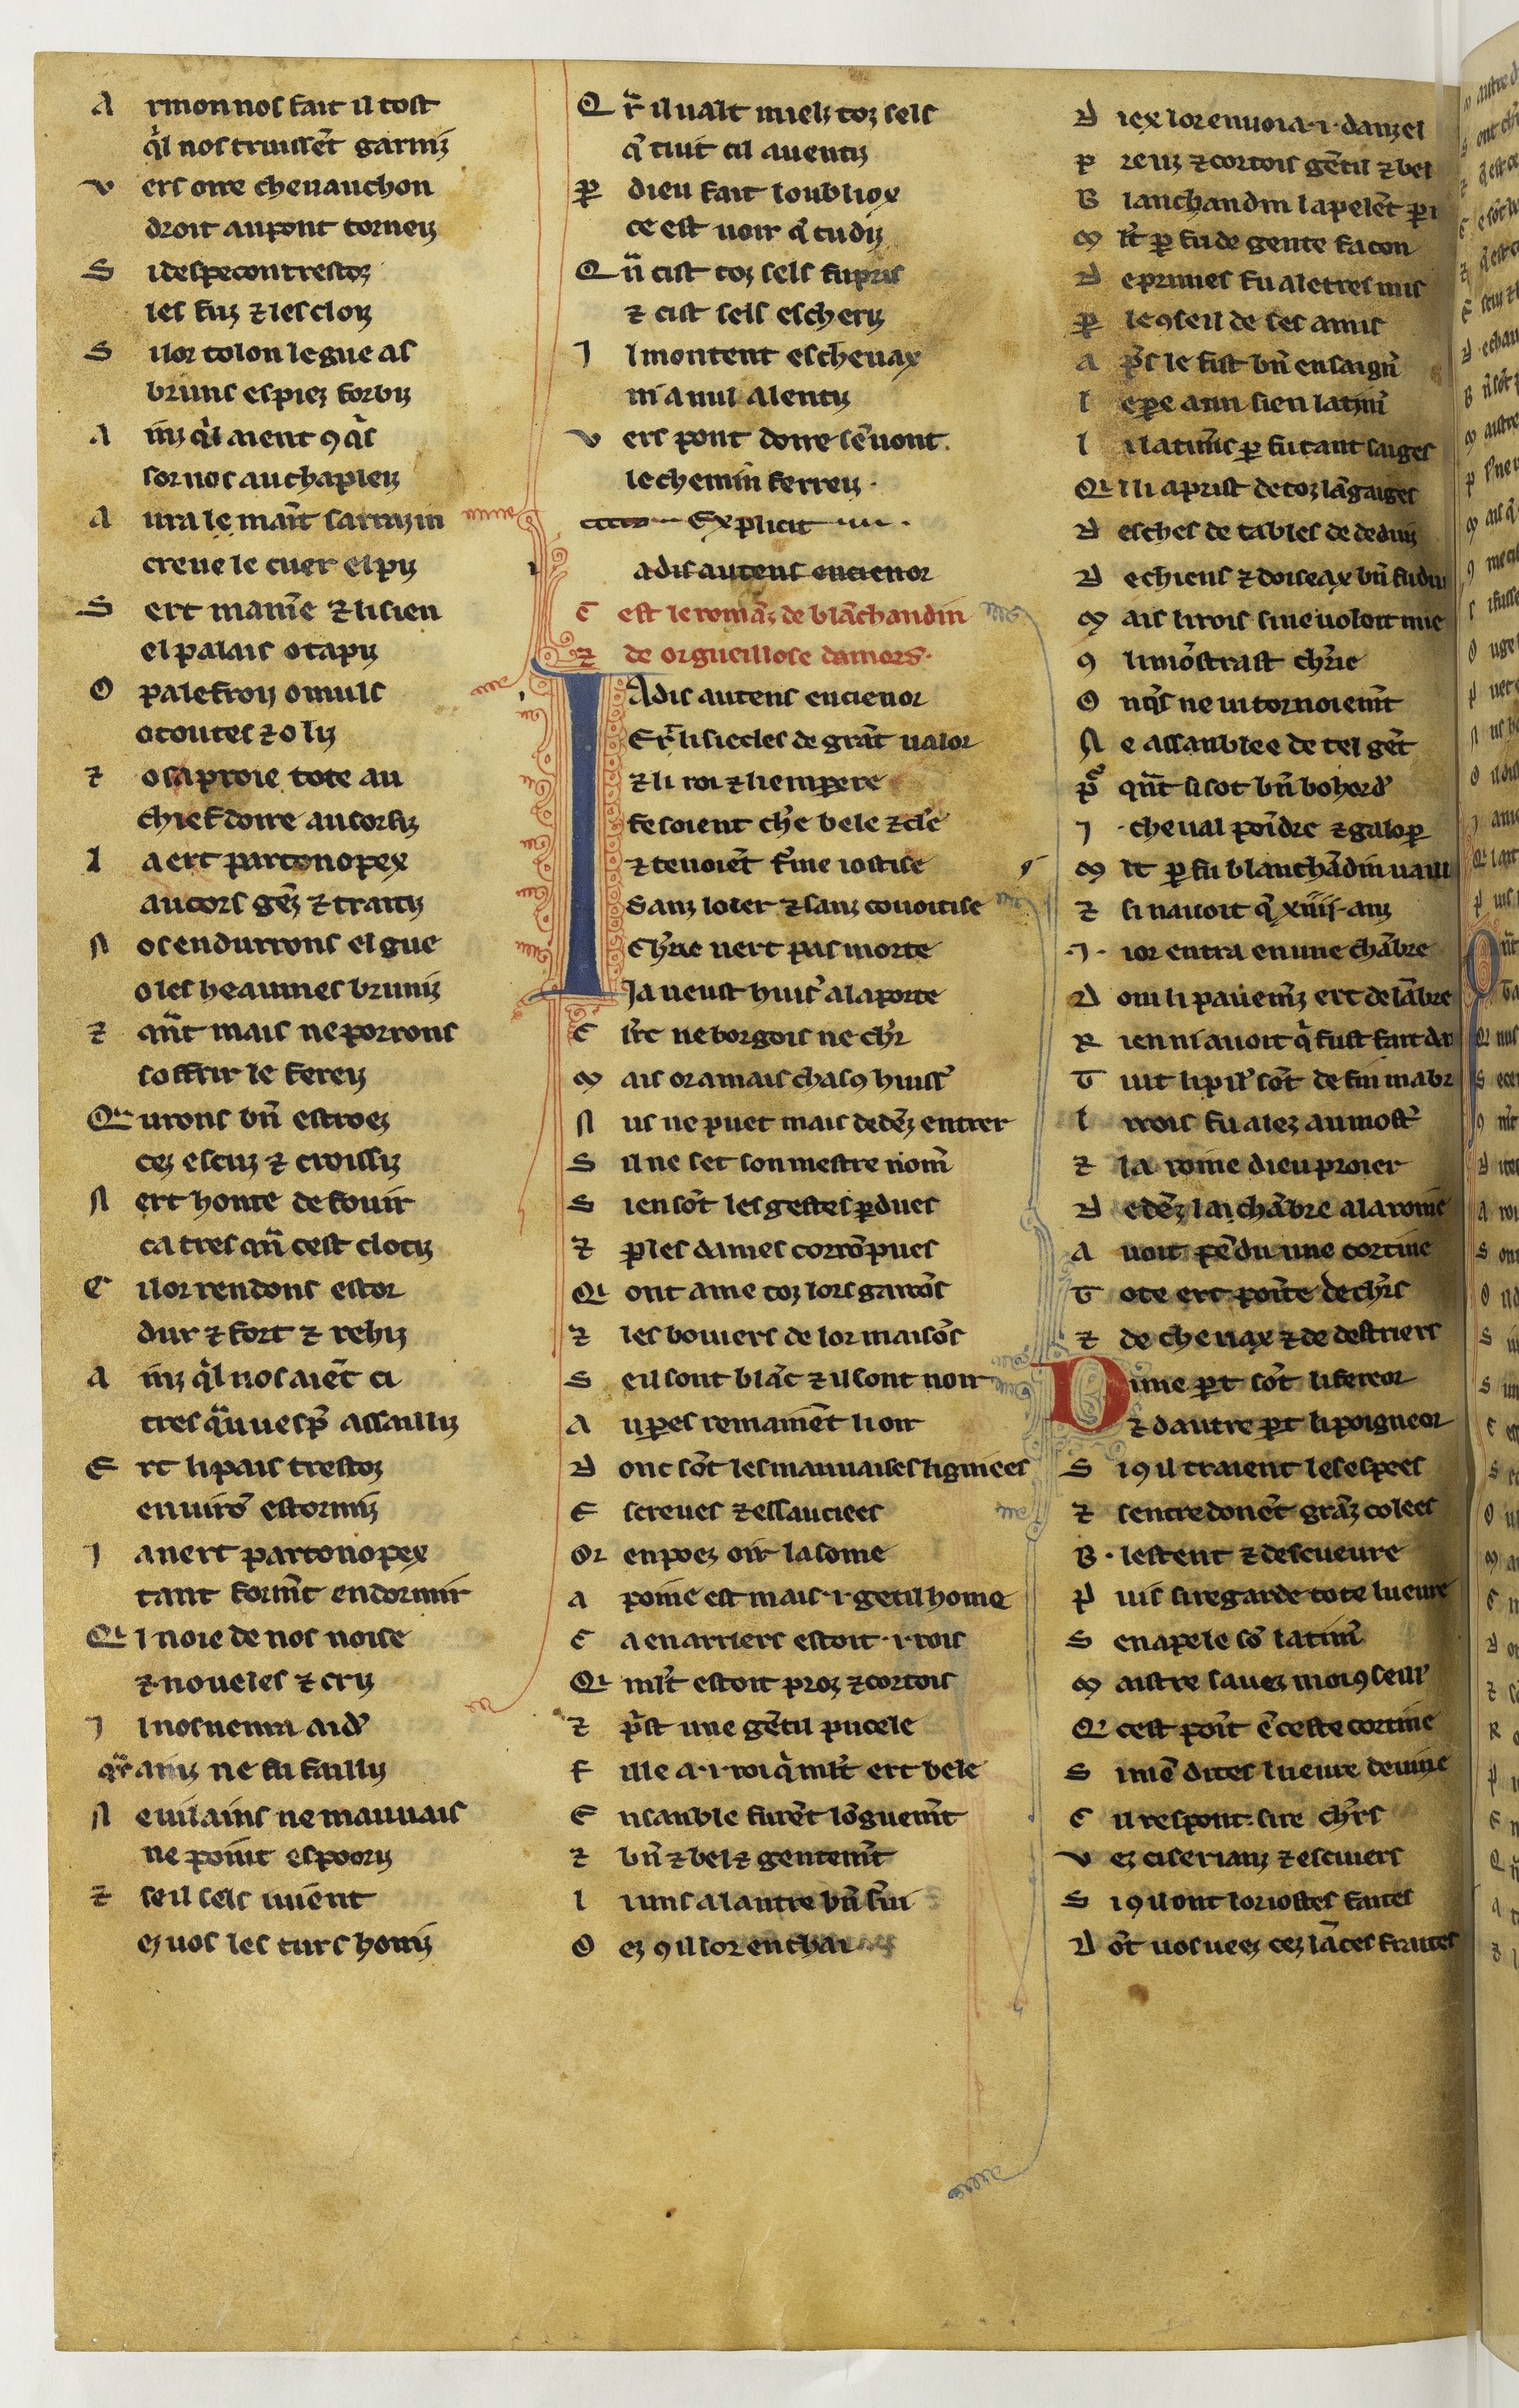 A rmon nos fait il tost
q̓l nos truisseı̃t garniz
V ers oire cheuauchon
droit au pont torneiz
S i despecon trestoz
les fuz ⁊ les cloiz
S i lor tolon le gue as
bruns espiez forbiz
A inz q̓l aient ꝯq̓s
sor nos au chapleiz
A ura le mar̃t sarrazin
creue le cuer el piz
S ert manie ⁊ li sien
el palais o tapiz
O palefroiz o muls
o coutes ⁊ o liz
⁊ o sa proie tote au
chief doire au sorsiz
L a ert partonopex
au cors gẽz ⁊ traitiz
N os endurrons el gue
o les heaumes bruniz
⁊ qñt mais ne porrons
soffrir le fereiz
Qu urons bñ estroez
cez escuz ⁊ croissiz
N ert honte de fouir
ca tres qñ cest clotiz
C i lor rendons estor
dur ⁊ fort ⁊ rehiz
A inz q̓l nos aiẽt ci
tres qu̓ uesp̃ assailliz
E rt li pais trestoz
enuirõ estormiz
J a nert partonopex
tant form̃t endormiz
Qu l noie de nos noise
⁊ noueles ⁊ criz
J l nos uenra aid̓
q̓r ainz ne fu failliz
N e uilains ne mauuais
ne point espooriz
⁊ se il sels uiuent
ez uos les turs honiz
Q r̃ il ualt mielz toz sels
q̃ tiut cil auentiz
ꝑ dieu fait loubliox
ce est uoir q̃ tu diz
Q ñ cist toz sels fu pris
⁊ cist sels escheriz
J l montent es cheuax
ni a nul alentiz
V ers pont doire sẽ uont
le chemin ferreiz
Explicit
adis au tens encienor
C est le romãz de blãchandin
⁊ de orgueillose damors
IAdis au tens encienor
Er̃t li siecles de grãt ualor
⁊ li roi ⁊ li empere
fesoient ch̓re bele ⁊ cl̓e
⁊ tenoiẽt f̓me iostise
Sanz loier ⁊ sanz couoitise
Ch̓rie nert pas morte
Ja neust huis̓ a la porte
C l̓rc ne borgois ne ch̓r
M ais or a mais chascꝯ huiss̓
N us ne puet mais dedẽz entrer
S il ne set son mestre nom̃
S i en sõt les gestes ꝑdues
⁊ ꝑ les dames corrõpues
Qu ont ame toz lors garcõs
⁊ les bouiers de lor maisõs
S e il sont blãc ⁊ il sont noir
A u ꝑes remainẽt li oir
D onc sõt les mauuaises ligniees
E screues ⁊ essauciees
Or en poez oir la some
A poine est mais .i. getil home
C a en arriers estoit .i. rois
Qu ml̓t estoit proz ⁊ cortois
⁊ p̓st une gẽtil pucele
F ille a .i. roi q̓ ml̓t ert bele
E nsanble furẽt lõguem̃t
⁊ bñ ⁊ bel ⁊ gentem̃t
L i uns a lautre bñ s̓ui
O ez ꝯ il lor enchai
D iex lor enuoia .i. danzel
P reuz ⁊ cortois gẽtil ⁊ bel
B lanchandin lapelẽt ꝑ
M l̓t ꝑ fu de gente facon
D e primes fu a letres mis
ꝑ le ꝯseil de ses amis
A p̓s le fist bñ ensaign̓
L e ꝑe a un sien latim̃
L i latim̃s ꝑ fu tant saiges
Qu l li aprist de toz lãgaiges
D esches de tables de deduiz
D e chiens ⁊ doiseax bñ fu dui
M ais li rois si ne uoloit mie
ꝯ li mõstrast ch̓rie
O nq̓s ne ui tornoiem̃t
N e assanblee de tel gẽt
Por qñt si sot bñ bohord̓
J cheual poĩdre ⁊ galoꝑ
M lt ꝑ fu blanchãdin uaill
⁊ si nauoit q̃ xiiij anz
.J. ior entra en une chãbre
D oni li pauem̃z ert de lãbre
R ien ni auoit q̓ fust fait da
T uit li pil̓ sõt de fin mabr
L i rois fu alez au most̓
⁊ la roine dieu proier
D edẽz la chãbre a la roine
A uoit pẽdu une cortine
T ote ert poı̃te de ch̓rs
⁊ de cheuax ⁊ de destriers
Dune ꝑt sõt li fereor
⁊ dautre ꝑt li poigneor
S i ꝯ il traient les espees
⁊ sentredonẽt grãz colees
B lestent ⁊ descueure
P uis si regarde tote lueure
S en apele sõ latim̃
M aistre sauez moi ꝯseill̓
Qu cest poı̃t ẽ ceste cortine
S i mẽ dites lueure deuine
C il respont sire ch̓rs
V ez ci serianz ⁊ escuiers
S i ꝯ il ont lor iostes faites
D õt uos ueez cez lãces fraites